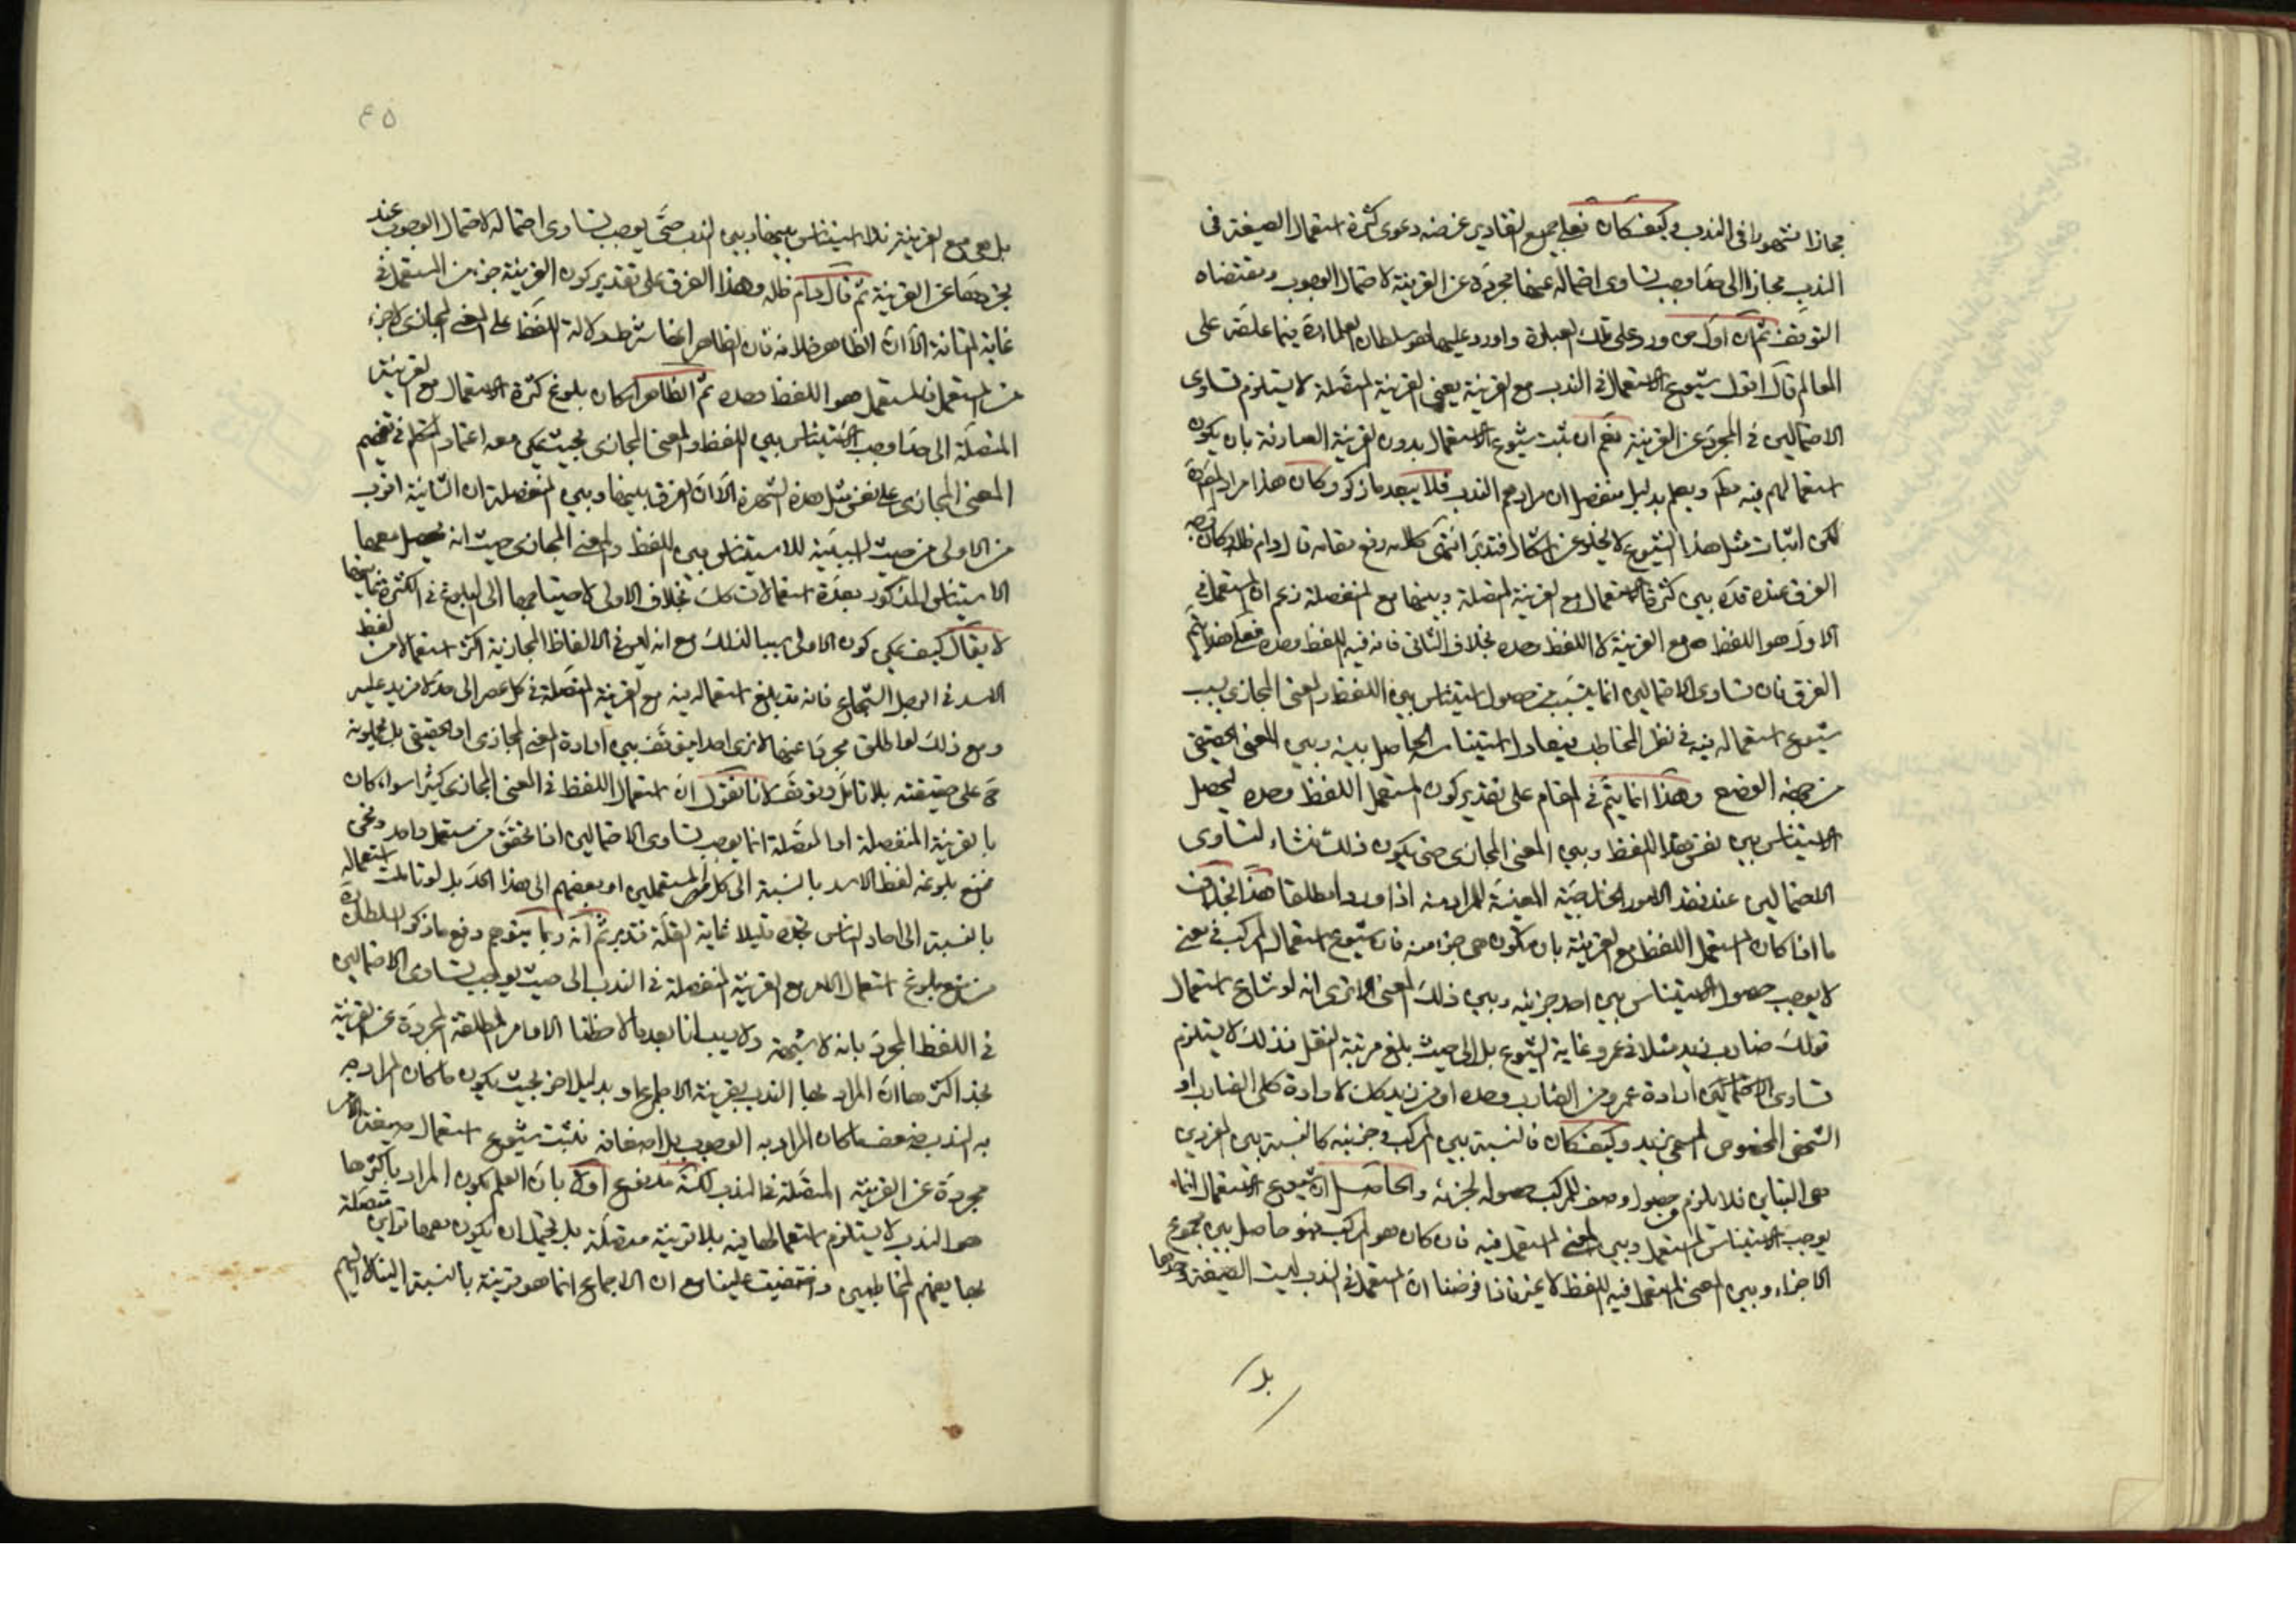 مجازا مشهورا فى الندب وكيف كان فعلى جميع التقادير غرضه دعوى كثرة استعمال الصيغة فى
الندب مجازا الى حد اوجب تساوى احتماله عنها مجردة عن القرينة لاحتمال الوجوب ومقتضاه
التوقف ثم ان اول من ورد على تلك العبارة واورد عليها هو سلطان العلماء ره فيما علقه على
المعالم قال اقول شيوع الاستعمال فى الندب مع القرينة يعنى القرينة المتصلة لا يستلزم تساوى
الاحتمالين فى المجرد عن القرينة نعم ان ثبت شيوع الاستعمال بدون القرينة الصارفة بان يكون
استعمالهم فيه مطلقا ويعلم بدليل منفصل ان مرادهم الندب فلا يبعد ما ذكر وكان هذا مراد المص ره
لكن اثبات مثل هذا الشيوع لا يخلو عن اشكال فتدبر انتهى كلامه رفع مقامه قال دام ظله وكان وجه
الفرق عنده قده بين كثرة الاستعمال مع القرينة المتصلة وبينها مع المنفصلة زعم ان المستعمل فى
الاول هو اللفظ مع القرينة لا اللفظ وحده بخلاف الثانى فانه فيه اللفظ وحده فعلى هذا يتم
الفرق فان تساوى الاحتمالين انما يتسبب من حصول استيناس بين اللفظ والمعنى المجازى بسبب
شيوع استعماله فيه فى نظر المخاطب فيعادل استيناسه الحاصل بينه وبين المعنى الحقيقى
من جهة الوضع وهذا انما يتم فى المقام على تقدير كون المستعمل اللفظ وحده ليحصل
الاستيناس بين نفس هذا اللفظ وبين المعنى المجازى حتى يكون ذلك منشاء لتساوى
الاحتمالين عند فقد الامور الخارجية المعينة للمراد منه اذا ورد مطلقا هذا بخلاف
ما اذا كان المستعمل اللفظ مع القرينة بان يكون هى جزءا منه فان شيوع استعمال المركب فى معنى
لا يوجب حصول الاستيناس بين احد جزئيه وبين ذلك المعنى الا ترى انه لو شاع استعمال
قولك ضارب زيد مثلا فى عمرو غاية الشيوع بل الى حيث بلغ مرتبة النقل فذلك لا يستلزم
تساوى الاحتمالين ارادة عمرو من الضارب وحده او من زيد كك لارادة كلى الضارب او
الشخص المخصوص المسمى بزيد وكيف كان فالنسبة بين المركب وجزئيه كالنسبة بين الفردين
هى التباين فلا يلزم حصول وصف للمركب حصوله لجزئه والحاصل ان شيوع الاستعمال انما
يوجب استيناس المستعمل وبين المعنى المستعمل فيه فان كان هو المركب فهو حاصل بين مجموع
الاجزاء وبين المعنى المستعمل فيه اللفظ لا غير فاذا فرضنا ان المستعمل فى الندب ليست الصيغة وحدها
بل
٤٥
بل هى مع القرينة فلا استيناس بينها وبين الندب حتى يوجب تساوى احتماله لاحتمال الوجوب عند
تجردها عن القرينة ثم قال دام ظله وهذا الفرق على تقدير كون القرينة جزء من المستعمل فى
غاية المتانة الا ان الظاهر خلافه فان الظاهر انها شرط دلالة اللفظ على المعنى المجازى لا جزء
من المستعمل فالمستعمل هو اللفظ وحده ثم الظاهر امكان بلوغ كثرة الاستعمال مع القرينة
المتصلة الى حد اوجب الاستيناس بين اللفظ والمعنى المجازى بحيث يمكن معه اعتماد المتكلم فى تفهيم
المعنى المجازى على نفس مثل هذه الشهرة الا ان الفرق بينها وبين المنفصلة ان الثانية اقرب
من الاولى من حيث السببية للاستيناس بين اللفظ والمعنى المجازى حيث انه يحصل معها
الاستيناس المذكور بعدة استعمالات كك بخلاف الاولى لاحتياجها الى البلوغ فى الكثرة نهايتها
لا يقال كيف يمكن كون الاولى سببا لذلك مع انه ليس فى الالفاظ المجازية اكثر استعمالا من لفظ
الاسد فى الرجل الشجاع فانه قد بلغ استعماله فيه مع القرينة المتصلة فى كل عصر الى حد لا مزيد عليه
ومع ذلك لو اطلق مجردا عنها لا نرى احدا يتوقف بين ارادة المعنى المجازى او الحقيقى بل يحملونه
ح على حقيقته بلا تامل وتوقف لانا نقول ان استعمال اللفظ فى المعنى المجازى كثيرا سواء كان
بالقرينة المنفصلة او المتصلة انما يوجب تساوى الاحتمالين اذا تحقق من مستعمل واحد ونحن
نمنع بلوغ لفظ الاسد بالنسبة الى كل من المستعملين او بعضهم الى هذا الحد بل لو تاملت استعماله
بالنسبة الى احاد الناس تجده قليلا غاية القلة فتدبر ثم انه ربما يتوهم دفع ما ذكره السلطان ره
من منع بلوغ استعمال الامر مع القرينة المنفصلة فى الندب الى حيث يوجب تساوى الاحتمالين
فى اللفظ المجرد بانه لا شبهة ولا ريب انا بعد ما لاحظنا الاوامر المطلقة المجردة عن القرينة
نجد اكثرها ان المراد بها الندب بقرينة الاجماع او بدليل اخر بحيث يكون ما كان المراد به
به الندب ضعف ما كان المراد به الوجوب بل اضعافه فثبت شيوع استعمال صيغة الامر
مجردة عن القرينة المتصلة فى الندب لكنه مدفوع اولا بان العلم بكون المراد باكثرها
هو الندب لا يستلزم استعمالها فيه بلا قرينة متصلة بل يحتمل ان يكون معها قراين متصلة
بها يفهم المخاطبين واختفيت علينا مع ان الاجماع انما هو قرينة بالنسبة الينا لا اليهم